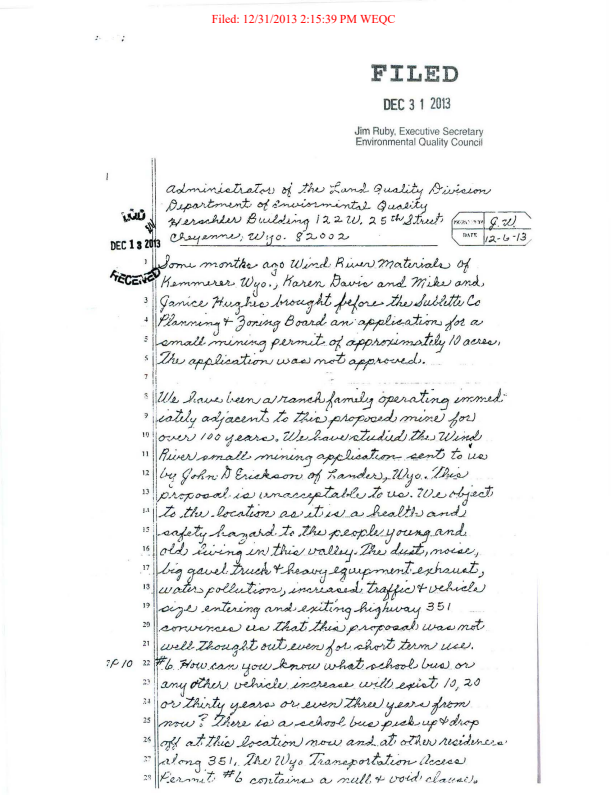 Filed: 12/31/2013 2:15:39 PM WEQC
FILED
DEC 31 2013
Jim Ruby, Executive Secretary
Environmental Quality Council
Administrator of the Land Quality Division
Department of Enviormintal Quality
Herschler Building 122 W. 25th Street
G.W.
DATE 12-6-13
Cheyenne, Wyo. 82002
DEC 13 2013
RECEIVED
1 Some months ago Wind River Materials of
Kemmerer Wyo., Karen Davis and Mike and
3 Janice Hughs brought before the Sublette Co
4 Planning + Zoning Board an application for a
5 small mining permit of approximately 10 acres.
6 The application was not approved.
7
8 We have been a ranch family operating immed-
9 iately adjacent to this proposed mine for
10 over 100 years. We have studied the Wind
11 River small mining application sent to us
12 by John D Erickson of Lander, Wyo. This
13 proposal is unacceptable to us. We object
14 to the location as it is a health and
15 safety hazard to the people young and
16 old living in this valley. The dust, noise,
17 big gavel truck & heavy equpment exhaust,
18 water pollution, increased traffic & vehicle
19 size entering and exiting highway 351
20 convinces us that this proposal was not
21 well thought out even for short term use.
22 #6. How can you know what school bus or
23 any other vehicle increase will exist 10, 20
24 or thirty years or even three years from
25 now? There is a school bus pick up & drop
26 off at this location now and at other residences
27 along 351. The Wyo Transportation Access
28 Permit #6 contains a null & void clause.